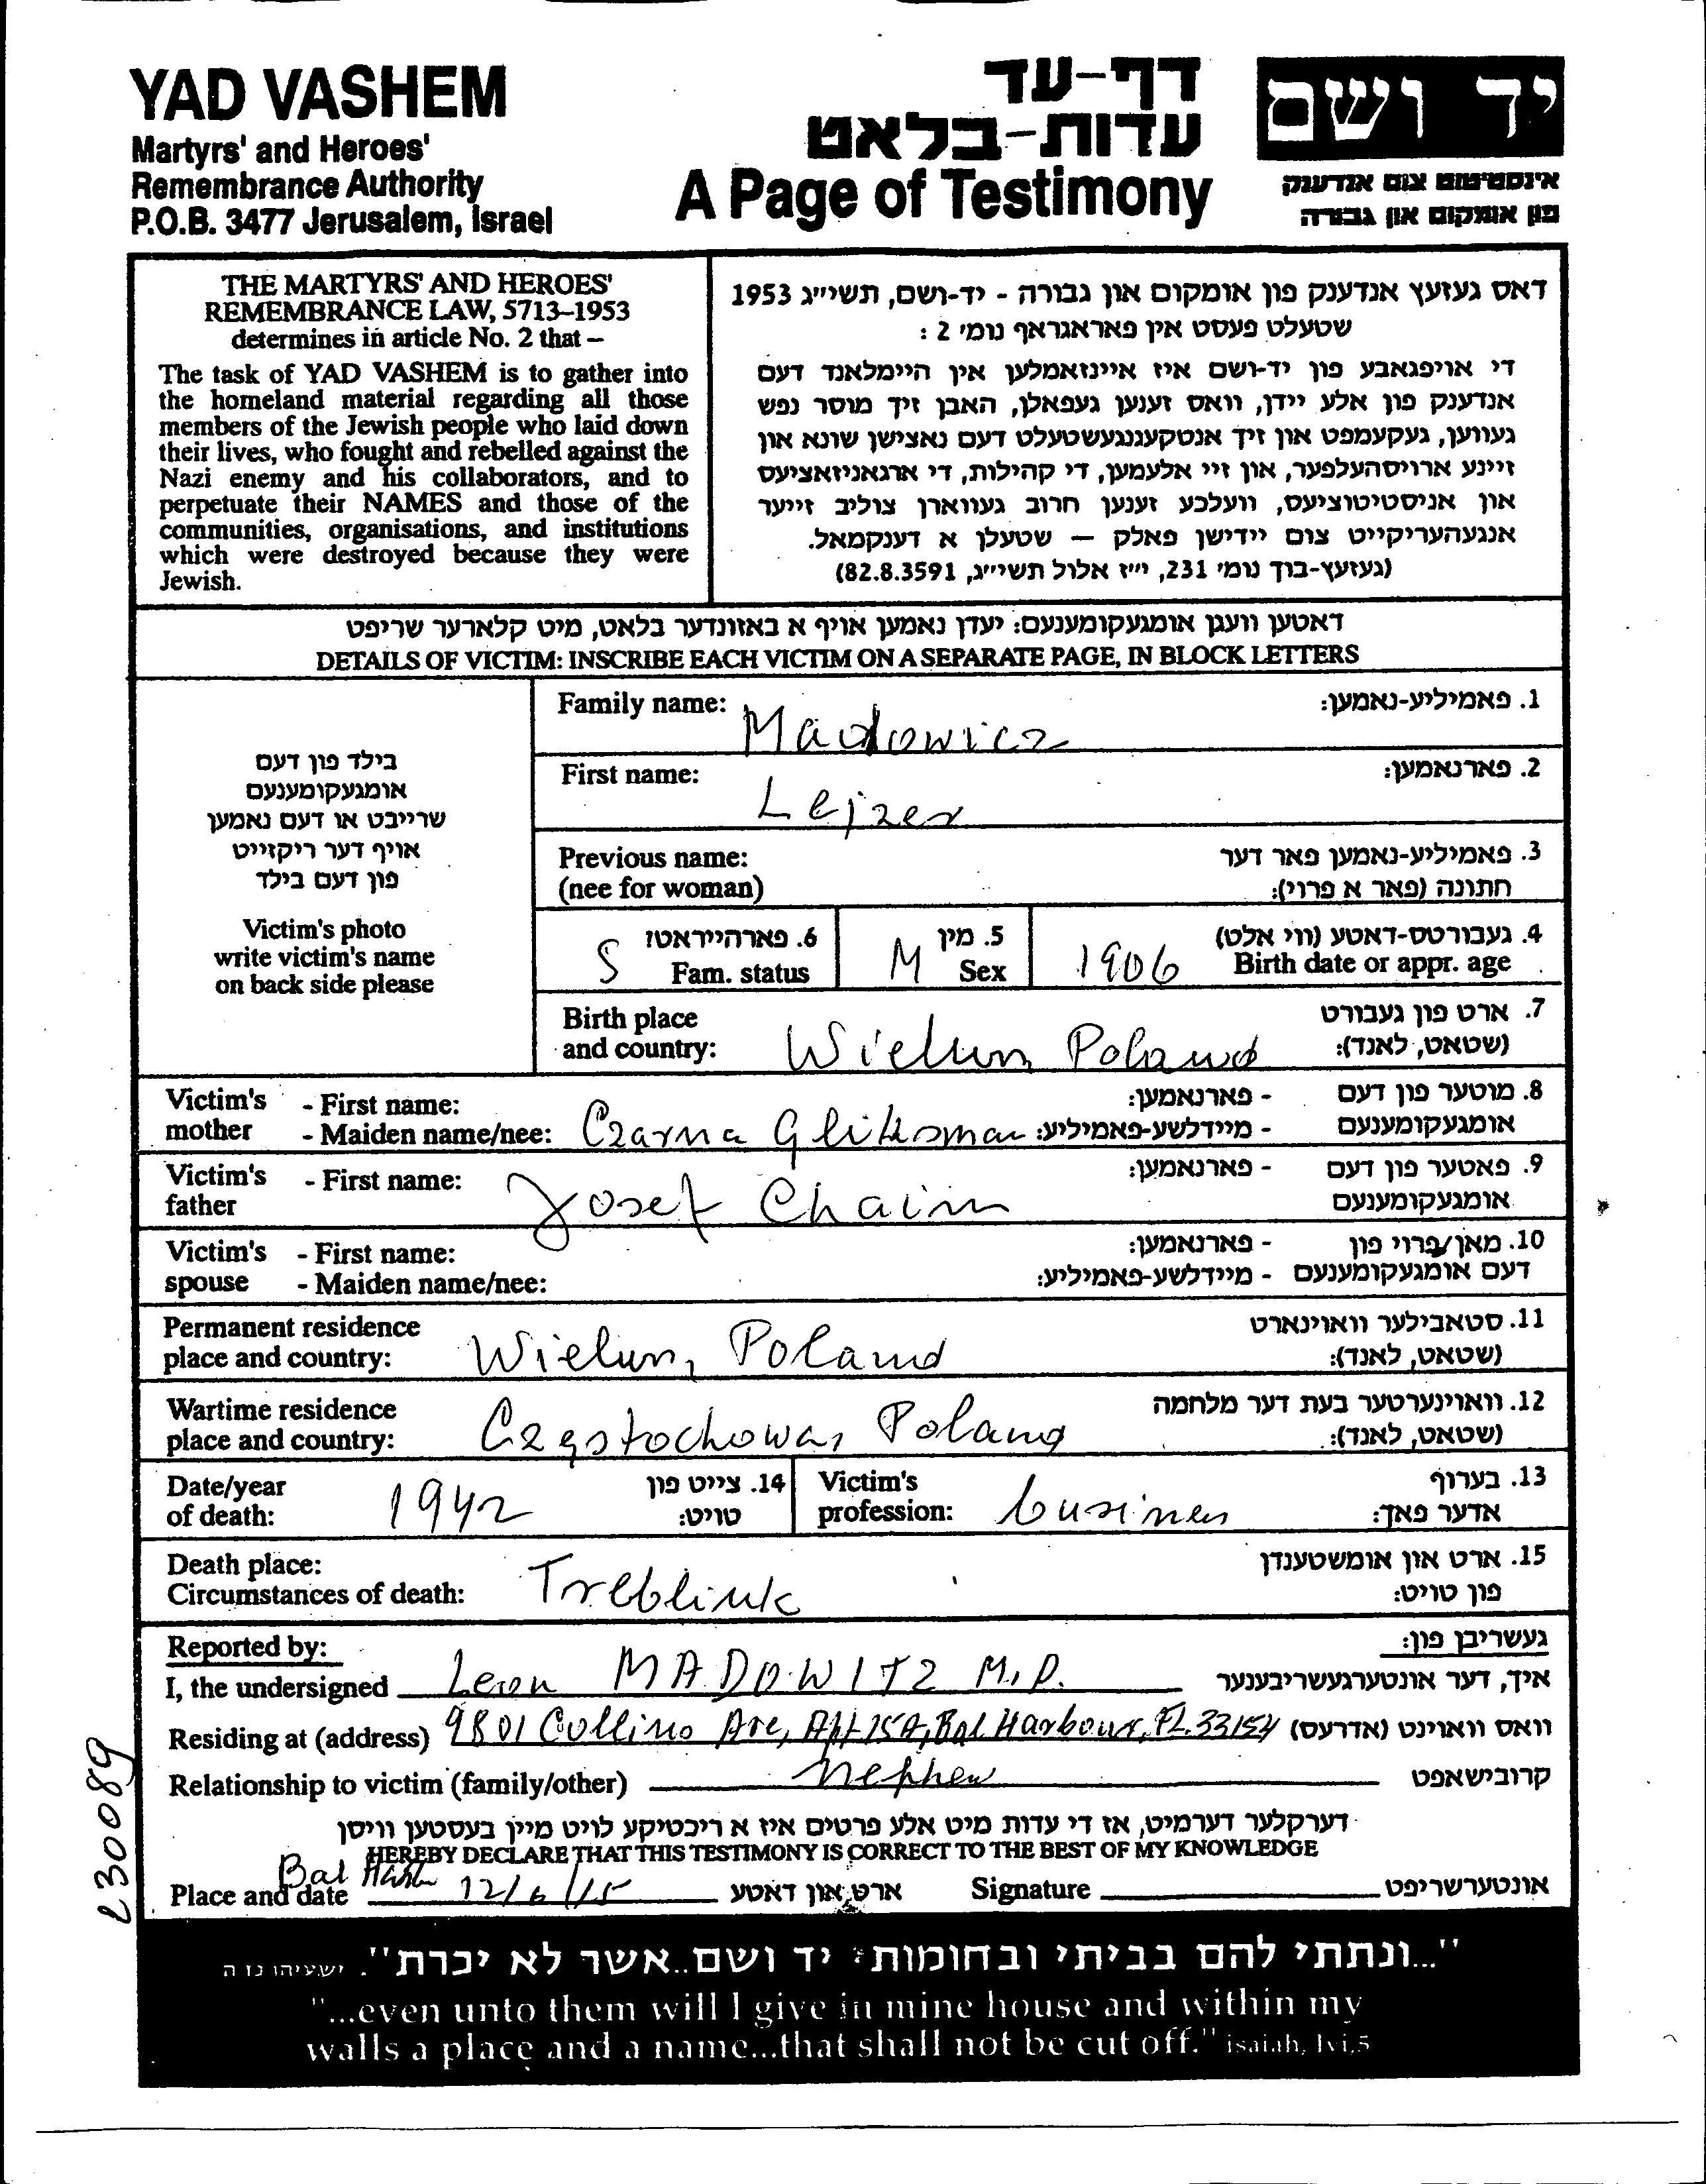 YAD VASHEM
Martyrs' and Heroes'
Remembrance Authority
P.O.B. 3477 Jerusalem, Israel
דף-עד
עדות-בלאט
A Page of Testimony
יד ושם
אינסטיטוט צום אנדענק
פון אומקום און גבורה
THE MARTYRS' AND HEROES'
REMEMBRANCE LAW, 5713–1953
determines in article No. 2 that –
The task of YAD VASHEM is to gather into
the homeland material regarding all those
members of the Jewish people who laid down
their lives, who fought and rebelled against the
Nazi enemy and his collaborators, and to
perpetuate their NAMES and those of the
communities, organisations, and institutions
which were destroyed because they were
Jewish.
דאס געזעץ אנדענק פון אומקום און גבורה - יד-ושם, תשי״ג 1953
שטעלט פעסט אין פאראגראף נומי 2 :
די אויפגאבע פון יד-ושם איז איינזאמלען אין היימלאנד דעם
אנדענק פון אלע יידן, וואס זענען געפאלן, האבן זיך מוסר נפש
געווען, געקעמפט און זיך אנטקעגנגעשטעלט דעם נאצישן שונא און
זיינע ארויסהעלפער, און זיי אלעמען, די קהילות, די ארגאניזאציעס
און אניסטיטוציעס, וועלכע זענען חרוב געווארן צוליב זייער
אנגעהעריקייט צום יידישן פאלק — שטעלן א דענקמאל.
(געזעץ-בוך נומי 231, י״ז אלול תשי״ג, 82.8.3591)
דאטען וועגן אומגעקומענעם: יעדן נאמען אויף א באזונדער בלאט, מיט קלארער שריפט
DETAILS OF VICTIM: INSCRIBE EACH VICTIM ON A SEPARATE PAGE, IN BLOCK LETTERS
בילד פון דעם
אומגעקומענעם
שרייבט או דעם נאמען
אויף דער ריקזייט
פון דעם בילד
Victim's photo
write victim's name
on back side please
Family name: Madowicz 1. פאמיליע-נאמען:
First name: Lejzer 2. פארנאמען:
Previous name: 3. פאמיליע-נאמען פאר דער
(nee for woman) חתונה (פאר א פרוי):
S 6. פארהייראטז M 5. מין 1906 4. געבורטס-דאטע (ווי אלט)
Fam. status Sex Birth date or appr. age
Birth place 7. ארט פון געבורט
and country: Wielun, Poland (שטאט, לאנד):
Victim's - First name: - פארנאמען: 8. מוטער פון דעם
mother - Maiden name/nee: Czarna Gliksman - מיידלשע-פאמיליע: אומגעקומענעם
Victim's - First name: Josef Chaim - פארנאמען: 9. פאטער פון דעם
father אומגעקומענעם
Victim's - First name: - פארנאמען: 10. מאן/פרוי פון
spouse - Maiden name/nee: - מיידלשע-פאמיליע: דעם אומגעקומענעם
Permanent residence 11. סטאבילער וואוינארט
place and country: Wielun, Poland (שטאט, לאנד):
Wartime residence 12. וואוינערטער בעת דער מלחמה
place and country: Częstochowa, Poland (שטאט, לאנד):
Date/year 14. צייט פון Victim's 13. בערוף
of death: 1942 טויט: profession: busines אדער פאך:
Death place: 15. ארט און אומשטענדן
Circumstances of death: Treblink פון טויט:
Reported by: געשריבן פון:
I, the undersigned Leon MADOWITZ M.D. איך, דער אונטערגעשריבענער
Residing at (address) 9801 Collins Ave, Apt 15A, Bal Harbour, FL. 33154 וואס וואוינט (אדרעס)
Relationship to victim (family/other) nephew קרובישאפט
דערקלער דערמיט, אז די עדות מיט אלע פרטים איז א ריכטיקע לויט מיין בעסטען וויסן
HEREBY DECLARE THAT THIS TESTIMONY IS CORRECT TO THE BEST OF MY KNOWLEDGE
Place and date Bal 12/6/15 ארט און דאטע Signature אונטערשריפט
230089
"...ונתתי להם בביתי ובחומותי יד ושם..אשר לא יכרת". ישעיהו נו ה
"...even unto them will I give in mine house and within my
walls a place and a name...that shall not be cut off." isaiah, lvi,5